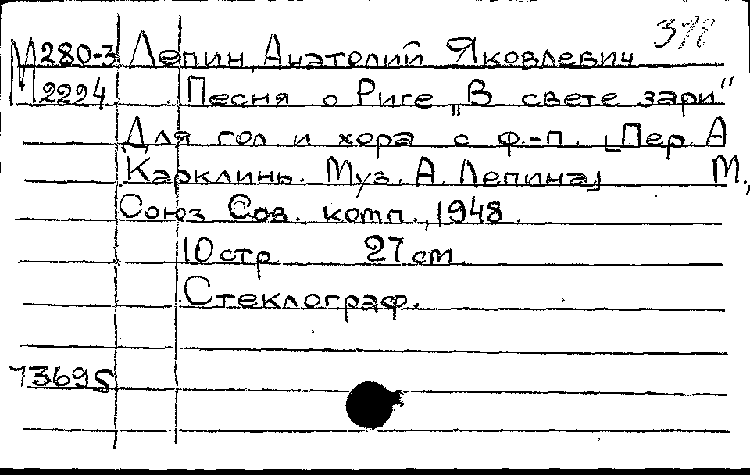 378
М280-3 Лепин, Анатолий Яковлевич
М2224 Песня о Риге „В свете зари"
Для гол и хора с ф.-п. [Пер. А
Карклинь. Муз. А. Лепина] М.,
Союз Сов. комп., 1948.
10 стр 27 cm
Стеклограф.
73695